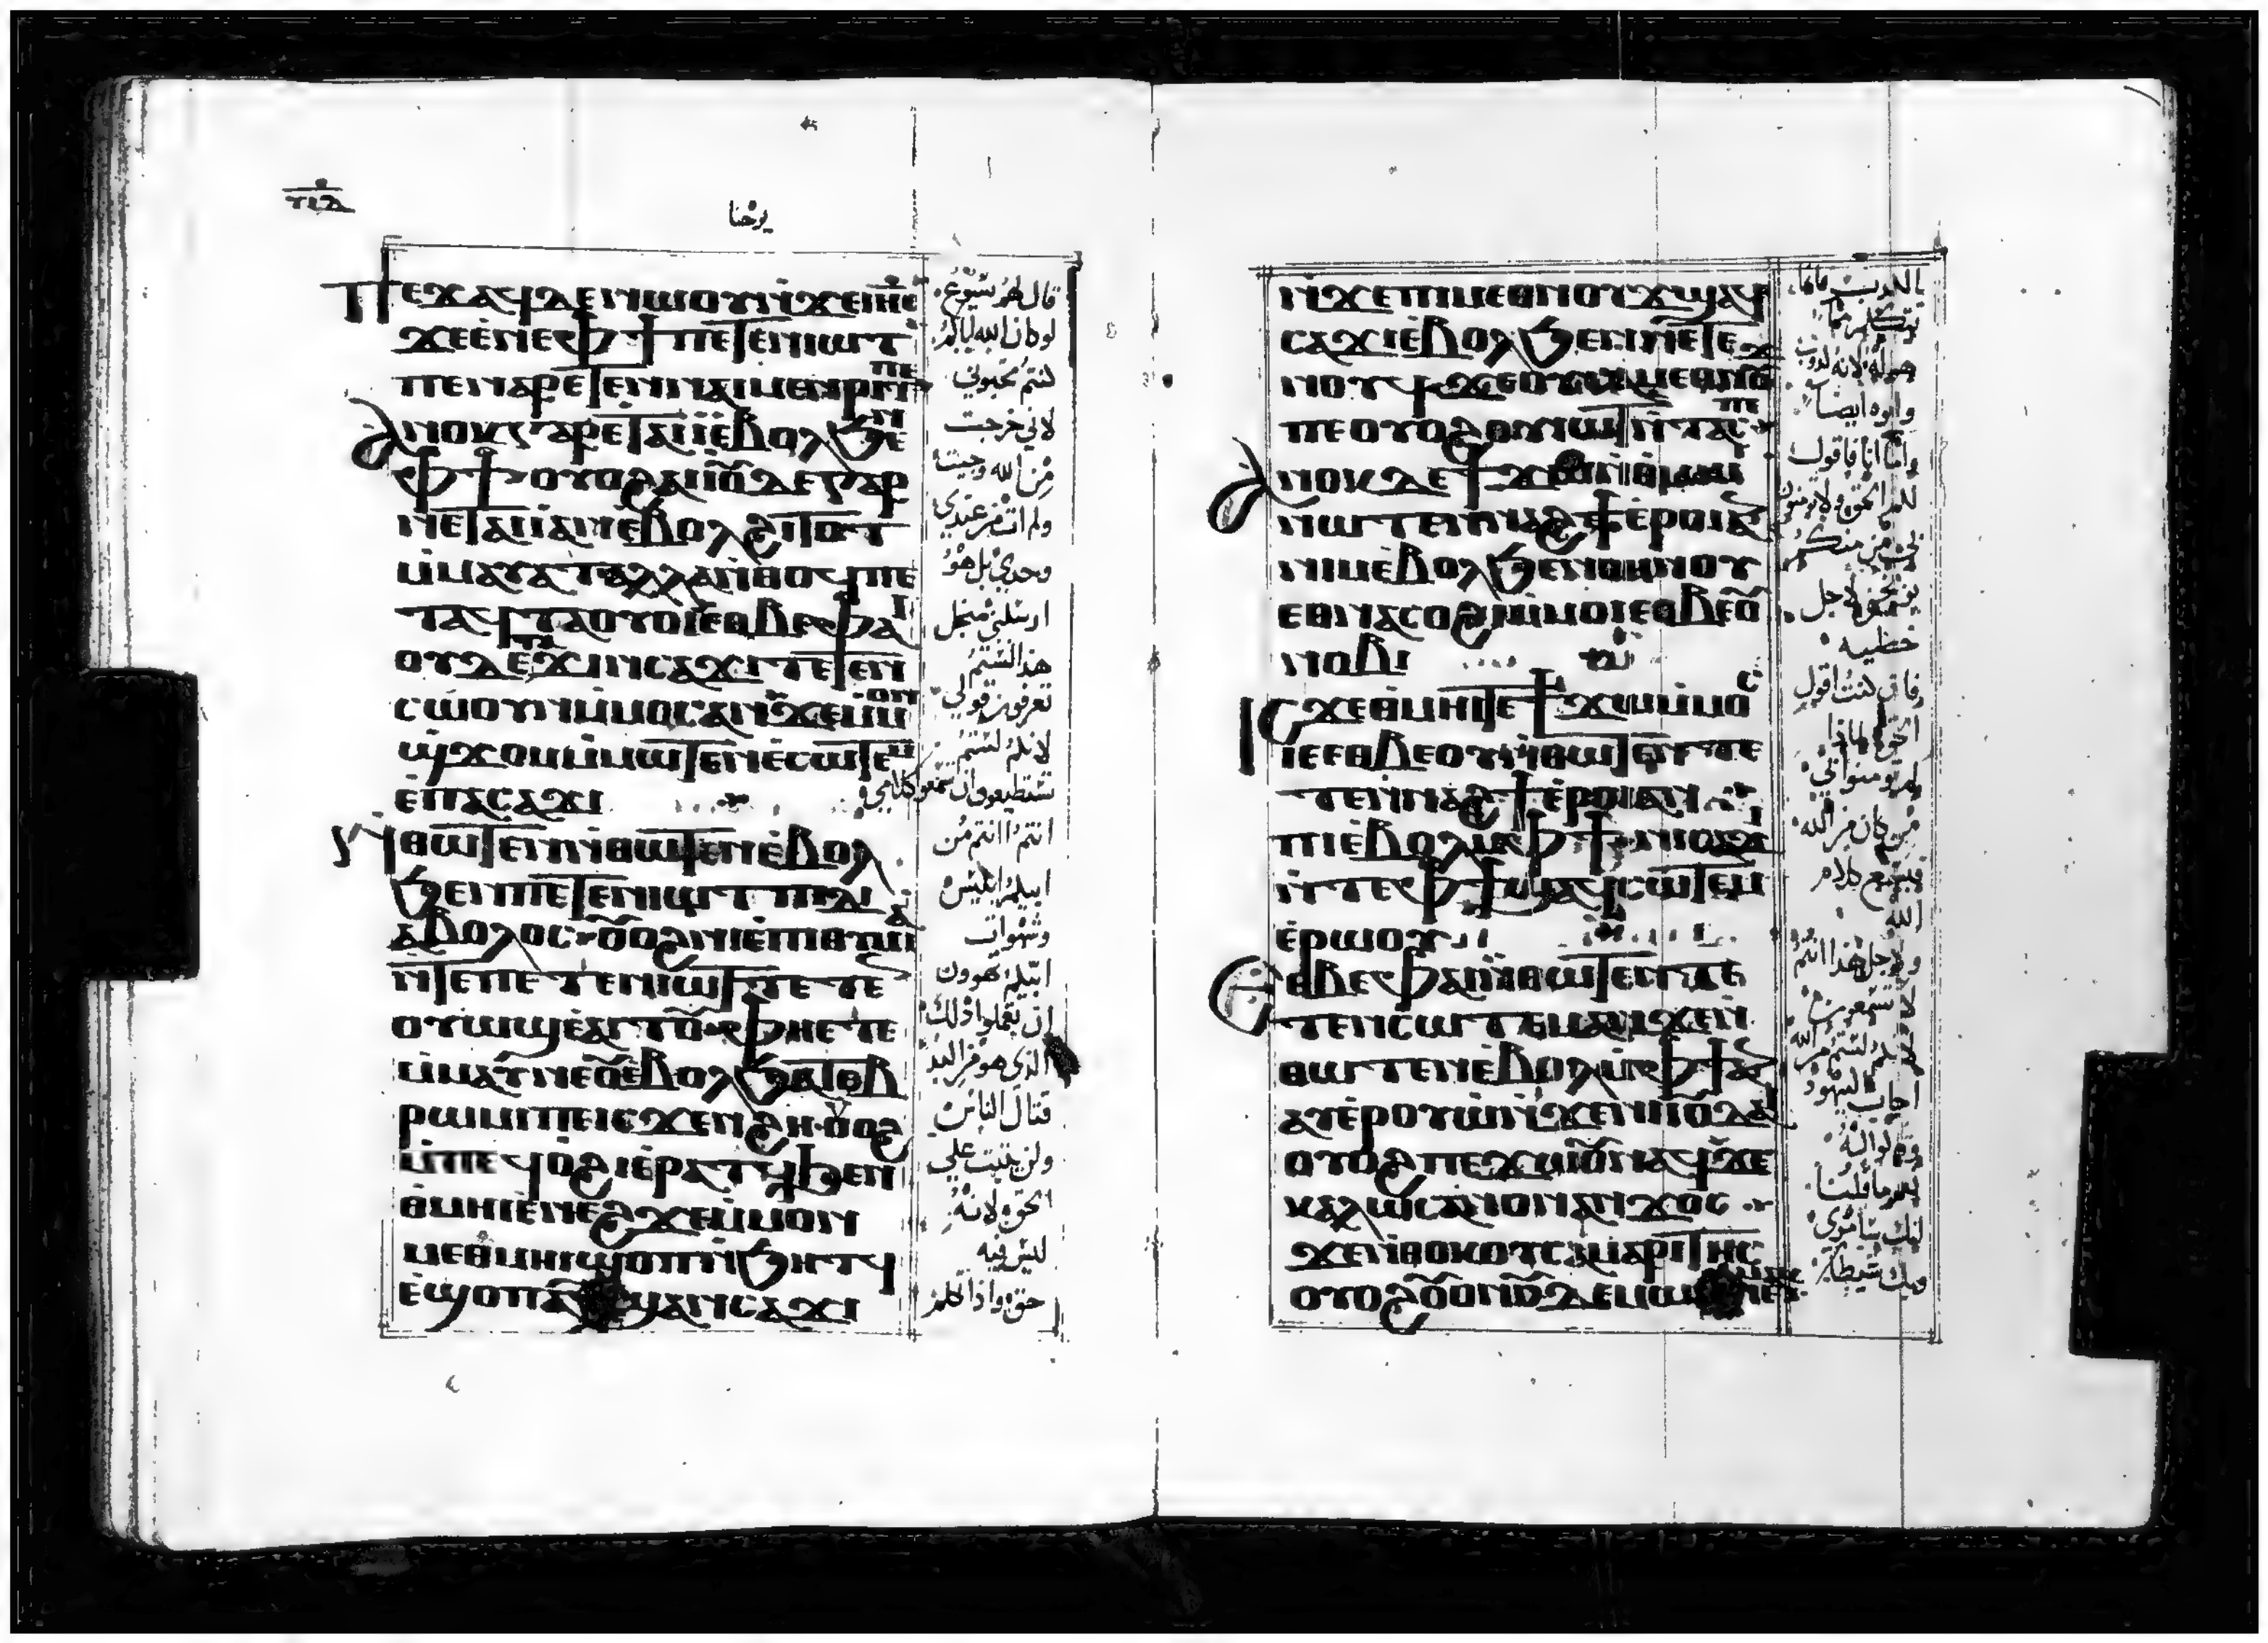 ⲧⲓⲇ
يوحنا
ⲡⲉϫⲁϥⲇⲉⲛⲱⲟⲩⲛ̀ϫⲉⲓⲏ̅ⲥ̅
ϫⲉⲉ̀ⲛⲉⲫϯⲡⲉⲧⲉⲛⲓⲱⲧ
ⲡⲉⲛⲁⲣⲉⲧⲉⲛⲛⲁⲙⲉⲛⲣⲓⲧⲡⲉ
ⲁⲛⲟⲕⲅⲁⲣⲉⲧⲁⲓⲓ̀ⲉⲃⲟⲗϧⲉⲛ
ⲫϯⲟⲩⲟϩⲁⲓⲓ̀ⲟⲩⲇⲉⲅⲁⲣ
ⲛⲉⲧⲁⲓⲓ̀ⲁⲛⲉ̀ⲃⲟⲗϩⲓⲧⲟⲧ
ⲙ̀ⲙⲁⲩⲁⲧⲁⲗⲗⲁⲛ̀ⲑⲟϥⲡⲉ
ⲧⲁϥⲧⲁⲟⲩⲟⲓⲉⲑⲃⲉⲫⲁⲓ
ⲟⲩⲇⲉⲡⲁϫⲓⲛⲥⲁϫⲓⲧⲉⲧⲉⲛ
ⲥⲱⲟⲩⲛⲙ̀ⲙⲟϥⲁⲛϫⲉⲙ̀ⲙⲟⲛ
ϣϫⲟⲙⲙ̀ⲙⲱⲧⲉⲛⲉ̀ⲥⲱⲧⲉⲙ
ⲉ̀ⲡⲁⲥⲁϫⲓ
ⲛ̀ⲑⲱⲧⲉⲛⲛ̀ⲑⲱⲧⲉⲛⲉ̀ⲃⲟⲗ
ϧⲉⲛⲡⲉⲧⲉⲛⲓⲱⲧⲡⲓⲇⲓ
ⲁⲃⲟⲗⲟⲥⲟⲩⲟϩⲛⲓⲉ̀ⲡⲓⲑⲩⲙⲓⲁ
ⲛ̀ⲧⲉⲡⲉⲧⲉⲛⲓⲱⲧⲧⲉⲧⲉ
ⲟⲩⲱϣⲉ̀ⲁⲓⲧⲟⲩⲫⲏⲉⲧⲉ
ⲙ̀ⲙⲁⲩⲛⲉⲟⲩⲉ̀ⲃⲟⲗϧⲁⲧⲉⲃ
ⲣⲱⲙⲓⲡⲉⲓⲥϫⲉⲛϩⲏⲟⲩⲟϩ
ⲙ̀ⲡⲉϥⲟϩⲓⲉ̀ⲣⲁⲧϥϧⲉⲛ
ⲑⲙⲏⲓⲉ̀ⲛⲉϩϫⲉⲙ̀ⲙⲟⲛ
ⲙⲉⲑⲙⲏⲓϣⲟⲡⲛ̀ϧⲏⲧϥ
ⲉ̀ϣⲱⲡⲁϥϣⲁⲛⲥⲁϫⲓ
قال لهم يسوع
لو كان الله اباكم
كنتم تحبوني
لاني خرجت
من الله وجيت
ولم ات من عندي
وحدي بل هو
ارسلني من اجل
هذا لستم
تعرفون قولي
لانكم لستم
تستطيعون ان تسمعوا كلامي
انتم انتم من
ابيكم ابليس
وشهوات
ابيكم تهوون
ان تعملوا ذلك
الذي هو من البد
قتال الناس
ولن يثبت علي
الحق لانه
ليس فيه
حق واذا تكلم
ⲛ̀ϫⲉⲡⲓⲙⲉⲑⲛⲟⲩϫϣⲁϥ
ⲥⲁϫⲓⲉ̀ⲃⲟⲗϧⲉⲛⲛⲉⲧⲉ
ⲛⲟⲩϥϫⲉⲟⲩⲥⲁⲙⲉⲑⲛⲟⲩϫ
ⲡⲉⲟⲩⲟϩⲡⲉϥⲕⲉⲓⲱⲧⲛ̀ⲧⲁϥⲡⲉ
ⲁⲛⲟⲕⲇⲉϯϫⲱⲛ̀ⲑⲙⲏⲓ
ⲛⲱⲧⲉⲛⲛⲁϩϯⲉ̀ⲣⲟⲓⲁⲛ
ⲛⲓⲙⲉ̀ⲃⲟⲗϧⲉⲛⲑⲏⲛⲟⲩ
ⲉⲑⲛⲁⲥⲟϩⲓⲙ̀ⲙⲟⲓⲉⲑⲃⲉⲟⲩ
ⲛⲟⲃⲓ
ⲓⲥϫⲉⲑⲙⲏⲓⲡⲉϯϫⲱⲙ̀ⲙⲟⲥ
ⲓⲉⲉⲑⲃⲉⲟⲩⲛ̀ⲑⲱⲧⲉⲛⲧⲉ
ⲧⲉⲛⲛⲁϩϯⲉ̀ⲣⲟⲓⲁⲛ
ⲡⲓⲉ̀ⲃⲟⲗⲙ̀ⲫϯⲛⲓⲥⲁϫⲓ
ⲛ̀ⲧⲉⲫϯϣⲁϥⲥⲱⲧⲉⲙ
ⲉ̀ⲣⲱⲟⲩ
ⲉⲑⲃⲉⲫⲁⲓⲛ̀ⲑⲱⲧⲉⲛⲧⲉ
ⲧⲉⲛⲥⲱⲧⲉⲙⲁⲛϫⲉⲛ̀
ⲑⲱⲧⲉⲛⲉ̀ⲃⲟⲗⲙ̀ⲫϯⲁⲛ
ⲁⲩⲉ̀ⲣⲟⲩⲱ̀ⲛ̀ϫⲉⲛⲓⲓⲟⲩⲇⲁⲓ
ⲟⲩⲟϩⲡⲉϫⲱⲟⲩⲛⲁϥϫⲉ
ⲕⲁⲗⲱⲥⲁⲛⲟⲛⲁⲛϫⲟⲥ
ϫⲉⲛ̀ⲑⲟⲕⲟⲩⲥⲁⲙⲁⲣⲓⲧⲏⲥ
ⲟⲩⲟϩⲟⲩⲟⲛⲟⲩⲇⲉⲙⲱⲛⲛⲉⲙⲁⲕ
بالكذب فانما
يتكلم مما
هو له لانه كذوب
وابوه ايضا
واما انا فاقول
لكم الحق ولا تومنون
بي من منكم
يوبخني لاجل
خطيه
فان كنت اقول
الحق لماذا
لم تومنوا بي
من كان من الله
فيسمع كلام
الله
ولاجل هذا انتم
لا تسمعون
لانكم لستم من الله
اجاب اليهود
وقالوا له
نعم ما قلنا
انك سامري
وبك شيطان